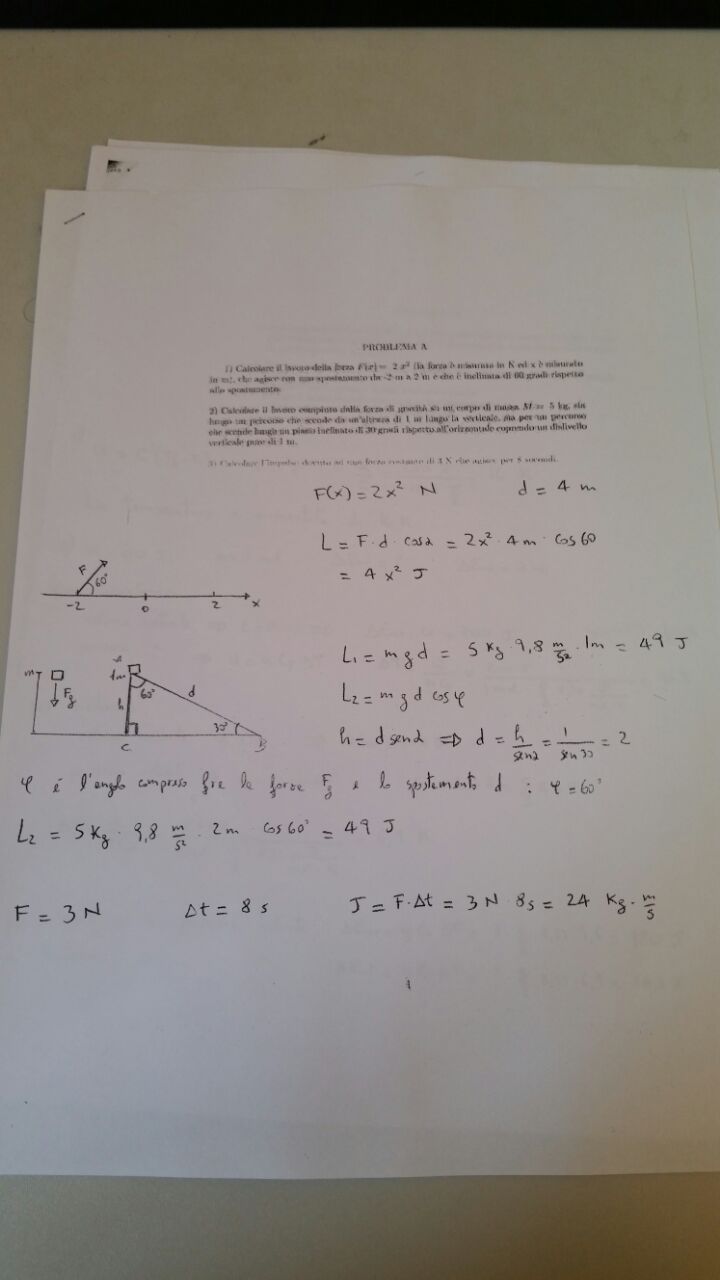 PROBLEMA A
1) Calcolare il lavoro della forza F(x) = 2 x² (la forza è misurata in N ed x è misurato
in m), che agisce con uno spostamento da -2 m a 2 m e che è inclinata di 60 gradi rispetto
allo spostamento.
2) Calcolare il lavoro compiuto dalla forza di gravità su un corpo di massa M = 5 kg, sia
lungo un percorso che scende da un'altezza di 1 m lungo la verticale, sia per un percorso
che scende lungo un piano inclinato di 30 gradi rispetto all'orizzontale coprendo un dislivello
verticale pure di 1 m.
3) Calcolare l'impulso dovuto ad una forza costante di 3 N che agisce per 8 secondi.
F(x) = 2x² N d = 4 m
L = F · d · cosα = 2x² · 4 m · cos 60
= 4 x² J
F 60°
-2 0 2 x
L₁ = m g d = 5 Kg · 9,8 m/s² · 1m = 49 J
m Fg 1m 60° d h
L₂ = m g d cos φ
30° C B
h = d senα ⇒ d = h/senα = 1/sen 30 = 2
φ é l'angolo compreso fra la forza Fg e lo spostamento d : φ = 60°
L₂ = 5 Kg · 9,8 m/s² · 2 m · cos 60° = 49 J
F = 3 N Δt = 8 s J = F·Δt = 3 N · 8 s = 24 Kg · m/s
1